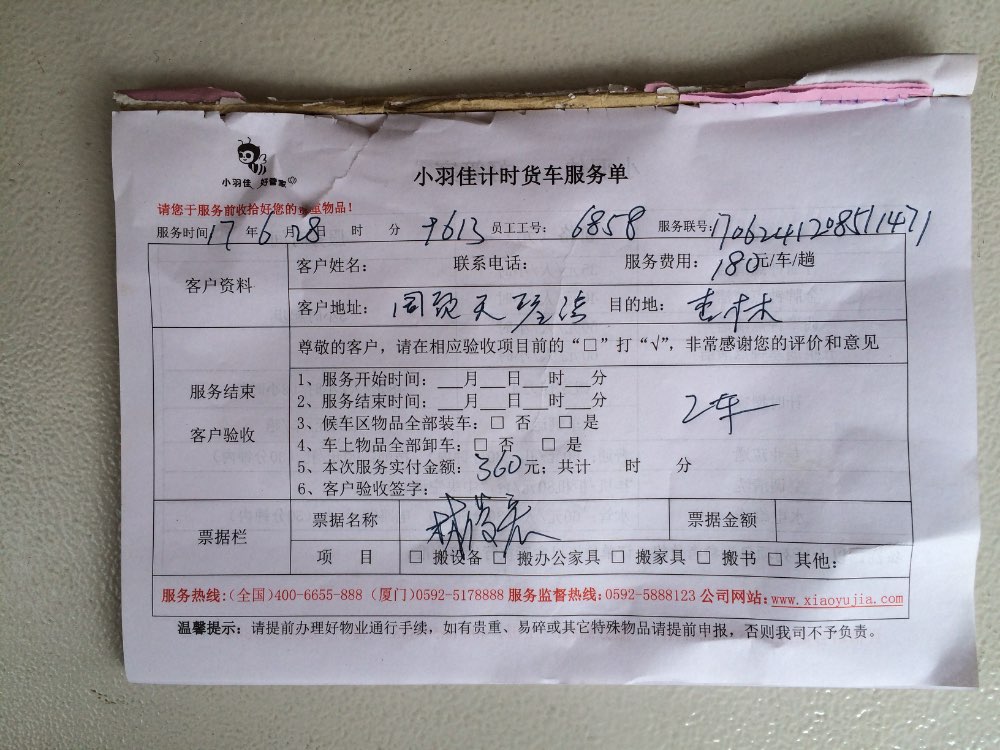 小羽佳 好管家
小羽佳计时货车服务单
请您于服务前收拾好您的贵重物品!
服务时间17年6月28日 时 分 员工工号: 6858 服务联号: 1706241208511471
客户资料
客户姓名: 联系电话: 服务费用: 180元/车/趟
客户地址: 目的地: 杏林
尊敬的客户,请在相应验收项目前的“□”打“√”,非常感谢您的评价和意见
服务结束
客户验收
1、服务开始时间:___月___日___时___分
2、服务结束时间:___月___日___时___分
3、候车区物品全部装车:□ 否 □ 是
4、车上物品全部卸车:□ 否 □ 是
5、本次服务实付金额: 360元;共计 时 分
6、客户验收签字:
2车
票据栏
票据名称 票据金额
项 目 □ 搬设备 □ 搬办公家具 □ 搬家具 □ 搬书 □ 其他:
服务热线:(全国)400-6655-888 (厦门)0592-5178888 服务监督热线:0592-5888123 公司网站:www.xiaoyujia.com
温馨提示:请提前办理好物业通行手续,如有贵重、易碎或其它特殊物品请提前申报,否则我司不予负责。